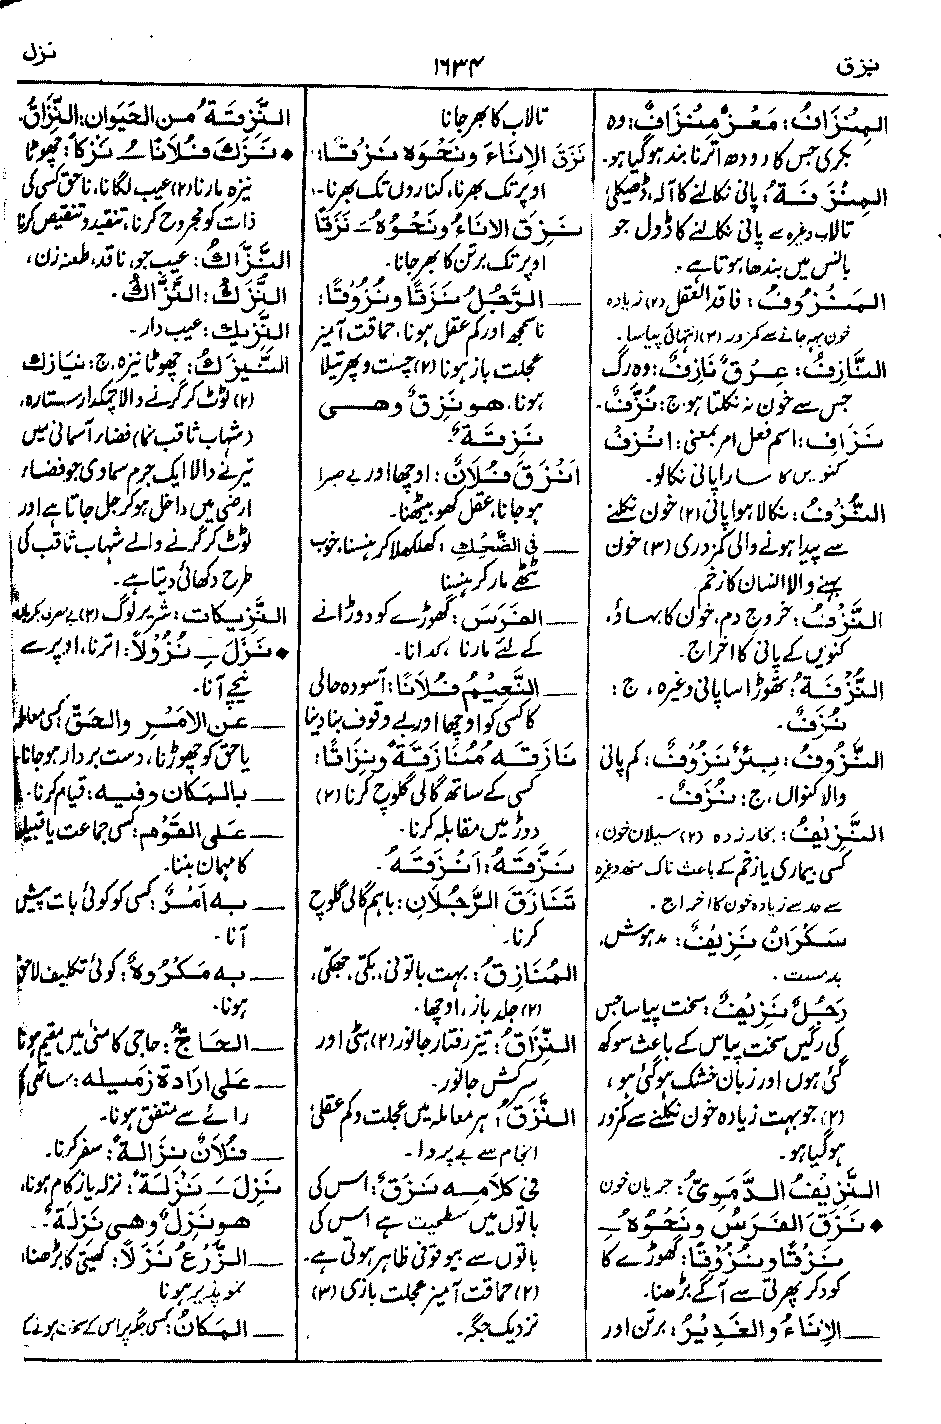 نزق
۱۶۳۴
نزل
المِنْزَافُ: مَعْزٌ مِنْزَافٌ: وہ
بکری جس کا دودھ اترنا بند ہوگیا ہو۔
المِنْزَفَةُ: پانی نکالنے کا آلہ، ڈھیکلی
تالاب وغیرہ سے پانی نکالنے کا ڈول جو
بانس میں بندھا ہوتا ہے۔
المَنْزُوفُ: فاقد العقل (۲) زیادہ
خون بہہ جانے سے کمزور (۳) انتہائی پیاسا۔
النَّازِفُ: عِرْقٌ نَازِفٌ: وہ رگ
جس سے خون نہ نکلتا ہو ج: نُزَّفٌ۔
نَزَافِ: اسم فعل امر بمعنی: انْزِفْ
کنویں کا سارا پانی نکالو۔
النُّزَفُ: نکالا ہوا پانی (۲) خون نکلنے
سے پیدا ہونے والی کمزوری (۳) خون
بہنے والا انسان کا زخم
النَّزْفُ: خروج دم، خون کا بہاؤ،
کنویں کے پانی کا اخراج۔
النُّزْفَةُ: تھوڑا سا پانی وغیرہ، ج:
نُزَفٌ۔
النَّزُوفُ: بِئْرٌ نَزُوفٌ: کم پانی
والا کنواں، ج: نُزُفٌ۔
النَّزِیْفُ: بخار زدہ (۲) سیلان خون،
کسی بیماری یا زخم کے باعث ناک منہ وغیرہ
سے حد سے زیادہ خون کا اخراج۔
سَکْرَانُ نَزِیْفٌ: مدہوش،
بدمست۔
رَجُلٌ نَزِیْفٌ: سخت پیاسا جس
کی رگیں سخت پیاس کے باعث سوکھ
گئی ہوں اور زبان خشک ہوگئی ہو،
(۲) جو بہت زیادہ خون نکلنے سے کمزور
ہوگیا ہو۔
النَّزِیْفُ الدَّمَوِیُّ: جریان خون
◆ نَزَقَ الفَرَسُ وَنَحْوُهُ ـِ
نَزْقًا وَنُزُوْقًا: گھوڑے کا
کود کر پھرتی سے آگے بڑھنا۔
— الاِنَاءُ وَالغَدِیْرُ: برتن اور
تالاب کا بھر جانا
نَزَقَ الاِنَاءَ وَنَحْوَهُ نَزْقًا:
اوپر تک بھرنا، کناروں تک بھرنا۔
نَزِقَ الاِنَاءُ وَنَحْوُهُ ـَ نَزَقًا
اوپر تک برتن کا بھر جانا۔
— الرَّجُلُ نَزَقًا وَنُزُوْقًا:
ناسمجھ اور کم عقل ہونا، حماقت آمیز
عجلت باز ہونا (۲) چست و پھرتیلا
ہونا، هو نَزِقٌ وهي
نَزِقَةٌ۔
اَنْزَقَ فُلَانٌ: اوچھا اور بے صبرا
ہو جانا، عقل کھو بیٹھنا۔
— فِی الضَّحِكِ: کھلکھلا کر ہنسنا، خوب
ٹھٹھے مار کر ہنسنا
— الفَرَسَ: گھوڑے کو دوڑانے
کے لئے مارنا، کدانا۔
— النَّعِیْمُ فُلَانًا: آسودہ حالی
کا کسی کو اوچھا اور بے وقوف بنا دینا
نَازَقَهُ مُنَازَقَةً وَنِزَاقًا:
کسی کے ساتھ گالی گلوچ کرنا (۲)
دوڑ میں مقابلہ کرنا۔
نَزَّقَهُ: اَنْزَقَهُ۔
تَنَازَقَ الرَّجُلَانِ: باہم گالی گلوچ
کرنا۔
المُنَازِقُ: بہت باتونی، بکی، جھکی،
(۲) جلد باز، اوچھا۔
النِّزَاقُ: تیز رفتار جانور (۲) ہٹی اور
سرکش جانور۔
النَّزَقُ: ہر معاملہ میں عجلت و کم عقلی
انجام سے بے پروا۔
فِی کَلَامِهِ نَزَقٌ: اس کی
باتوں میں سطحیت ہے اس کی
باتوں سے بیوقوفی ظاہر ہوتی ہے۔
(۲) حماقت آمیز عجلت بازی (۳)
نزدیک جگہ۔
النَّزِقَةُ من الحَیَوان: النِّزَاقُ۔
◆ نَزَكَ فُلَانًا ـُ نَزْكًا: چھوٹا
نیزہ مارنا (۲) عیب لگانا، ناحق کسی کی
ذات کو مجروح کرنا، تنقید و تنقیص کرنا
النَّزَّاكُ: عیب جو، ناقد، طعنہ زن،
النُّزَكُ: النَّزَّاكُ۔
النَّزِیْكُ: عیب دار۔
النَّیْزَكُ: چھوٹا نیزہ، ج: نیازك
(۲) ٹوٹ کر گرنے والا چمکدار ستارہ،
(شہاب ثاقب نما) فضاء آسمانی میں
تیرنے والا ایک جرم سماوی جو فضاء
ارضی میں داخل ہوکر جل جاتا ہے اور
ٹوٹ کر گرنے والے شہاب ثاقب کی
طرح دکھائی دیتا ہے۔
النَّزِیکات: شریر لوگ (۲)
◆ نَزَلَ ـِ نُزُوْلًا: اترنا، اوپر سے
نیچے آنا۔
— عن الاَمْرِ والحَقِّ: کسی معاملہ
یا حق کو چھوڑنا، دست بردار ہو جانا
— بالمکان وفیه: قیام کرنا۔
— عَلَی القَوْمِ: کسی جماعت یا قبیلہ
کا مہمان بننا۔
— بِه اَمْرٌ: کسی کو کوئی بات پیش
آنا۔
— بِه مَکْرُوهٌ: کوئی تکلیف لاحق
ہونا۔
— الحَاجُّ: حاجی کا منیٰ میں مقیم ہونا
— عَلَی اِرَادَةِ زَمِیلِه: ساتھی کی
رائے سے متفق ہونا۔
— فُلَانٌ نِزَالَةً: سفر کرنا۔
نَزِلَ ـَ نَزْلَةً: نزلہ یا زکام ہونا،
هو نَزِلٌ وهي نَزِلَةٌ۔
— الزَّرْعُ نَزَلًا: کھیتی کا بڑھنا،
نمو پذیر ہونا
— المکانُ: کسی جگہ پر اس کے سخت ہونے کی